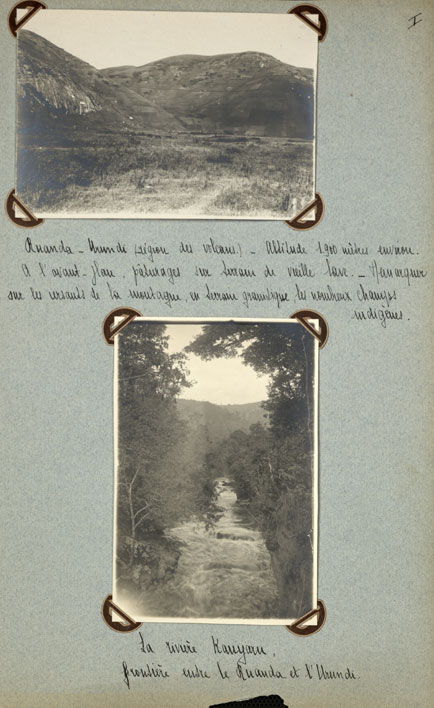 I
Ruanda-Urundi (région des volcans) - Altitude 1900 mètres environ.
A l'avant-plan, pâturages sur terrain de vieille lave. - Remarquer
sur les versants de la montagne, en terrain granitique, les nombreux champs
indigènes.
La rivière Kanyaru.
Frontière entre le Ruanda et l'Urundi.